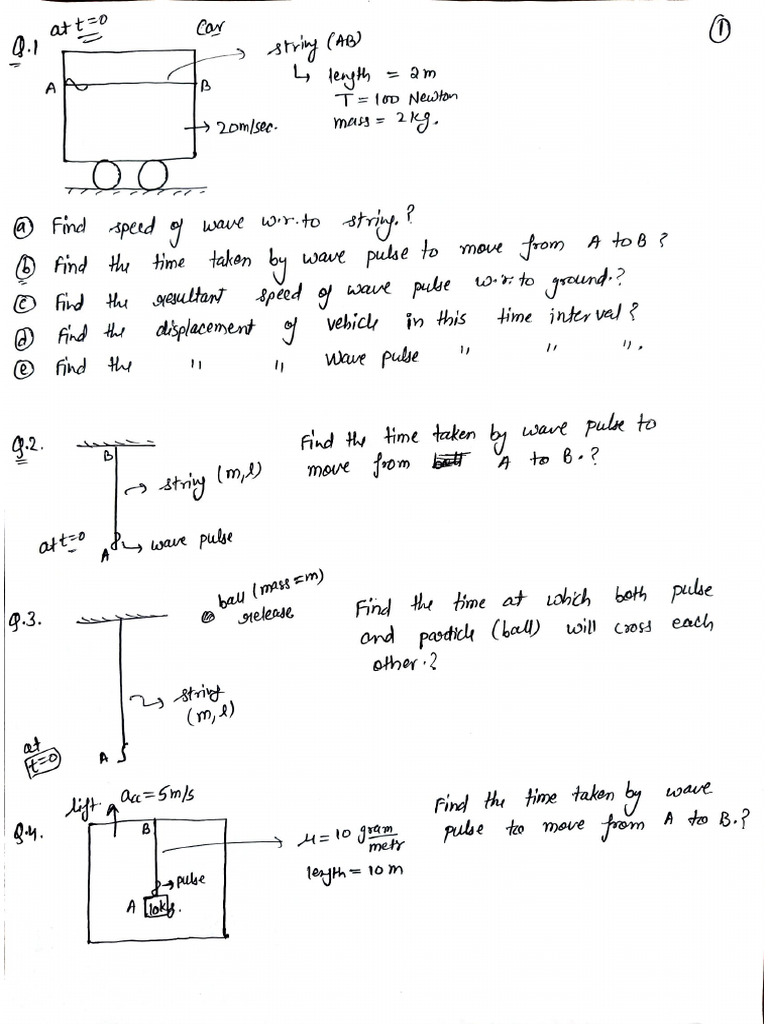 ①
at t=0
Car
Q.1
string (AB)
↳ length = 2m
T = 100 Newton
mass = 2kg.
A
B
→ 20m/sec.
ⓐ Find speed of wave w.r.to string.?
ⓑ Find the time taken by wave pulse to move from A to B ?
ⓒ Find the resultant speed of wave pulse w.r.to ground.?
ⓓ Find the displacement of vehicle in this time interval?
ⓔ Find the " " wave pulse " " ".
Q.2.
B
→ string (m,l)
at t=0
A
→ wave pulse
Find the time taken by wave pulse to
move from A to B.?
Q.3.
ball (mass=m)
release
→ string
(m,l)
at
t=0
A
Find the time at which both pulse
and particle (ball) will cross each
other.?
Q.4.
lift.
acc = 5m/s
B
→ pulse
A
10kg.
→ μ = 10 gram/metr
length = 10 m
Find the time taken by wave
pulse to move from A to B.?